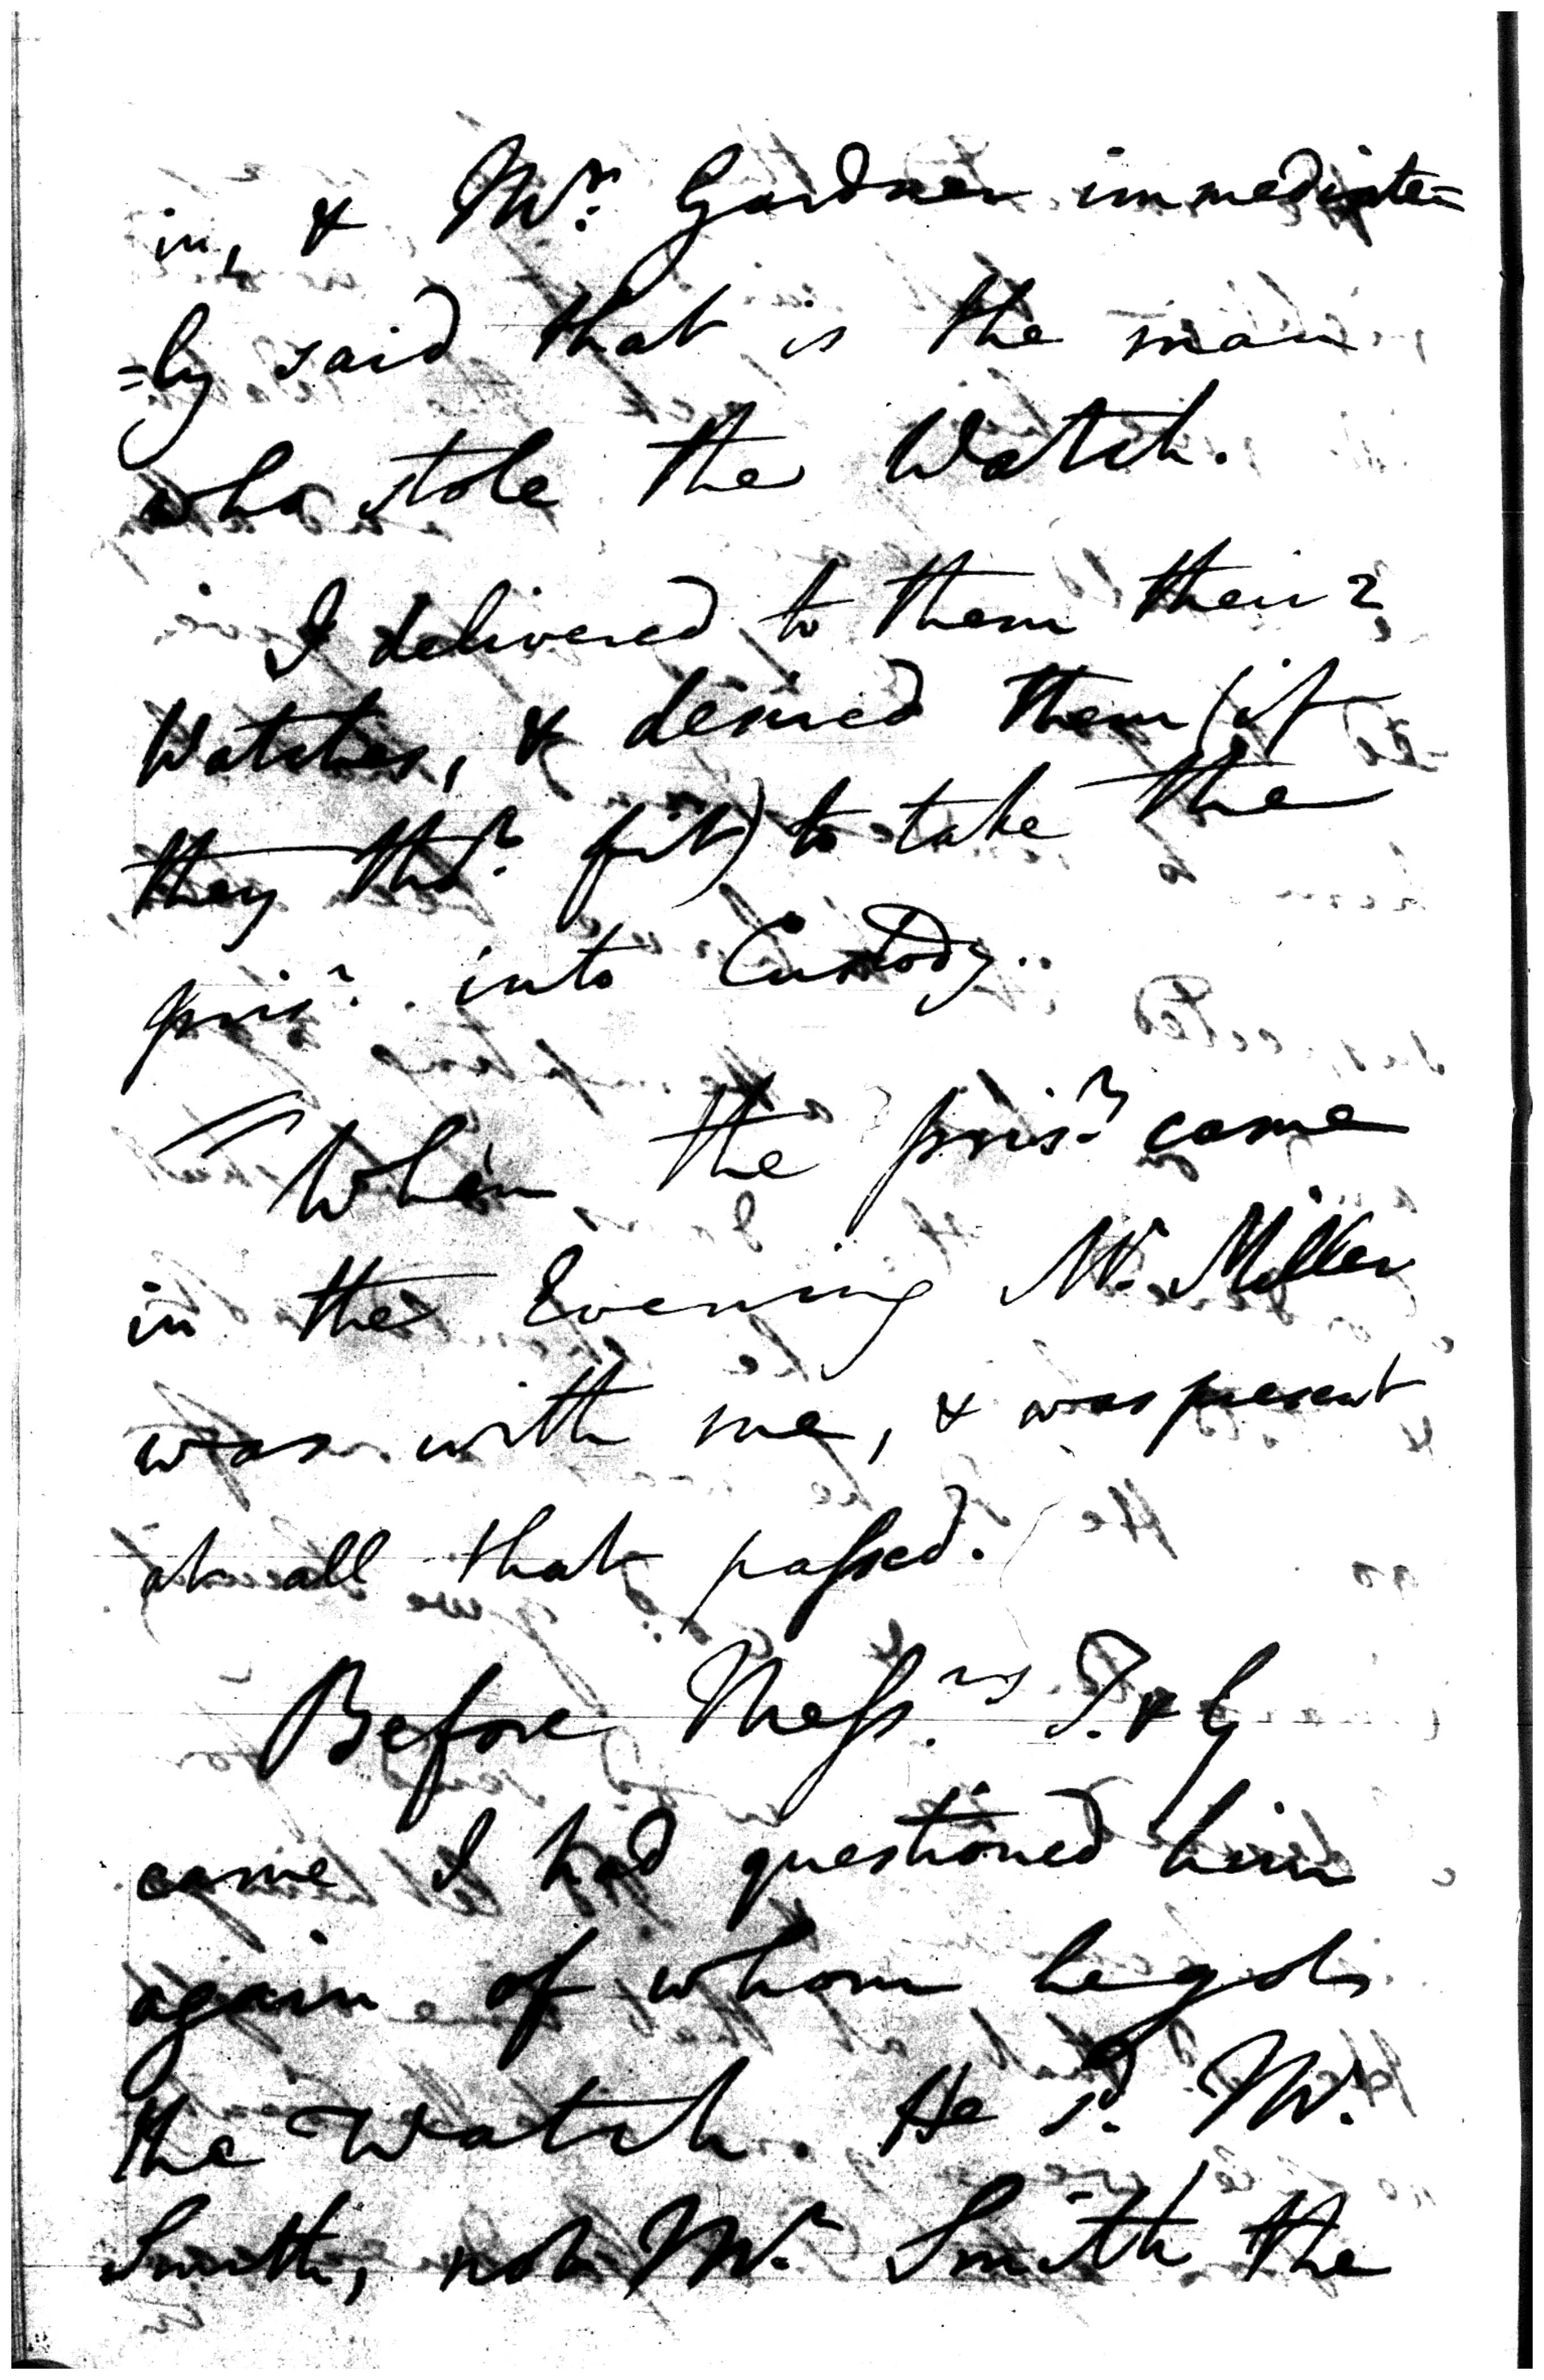 in, & Mr. Gardner immediate=
=ly said that is the man
who stole the Watch.
I delivered to them their 2
Watches, & desired them (if
they thot. fit) to take the
prisr. into Custody.
When the prisr. came
in the Evening Mr. Miller
was with me, & was present
at all that passed.
Before Messrs. T. & G
came I had questioned him
again of whom he got
the Watch. He sd. Mr.
Smith, not Mr. Smith the